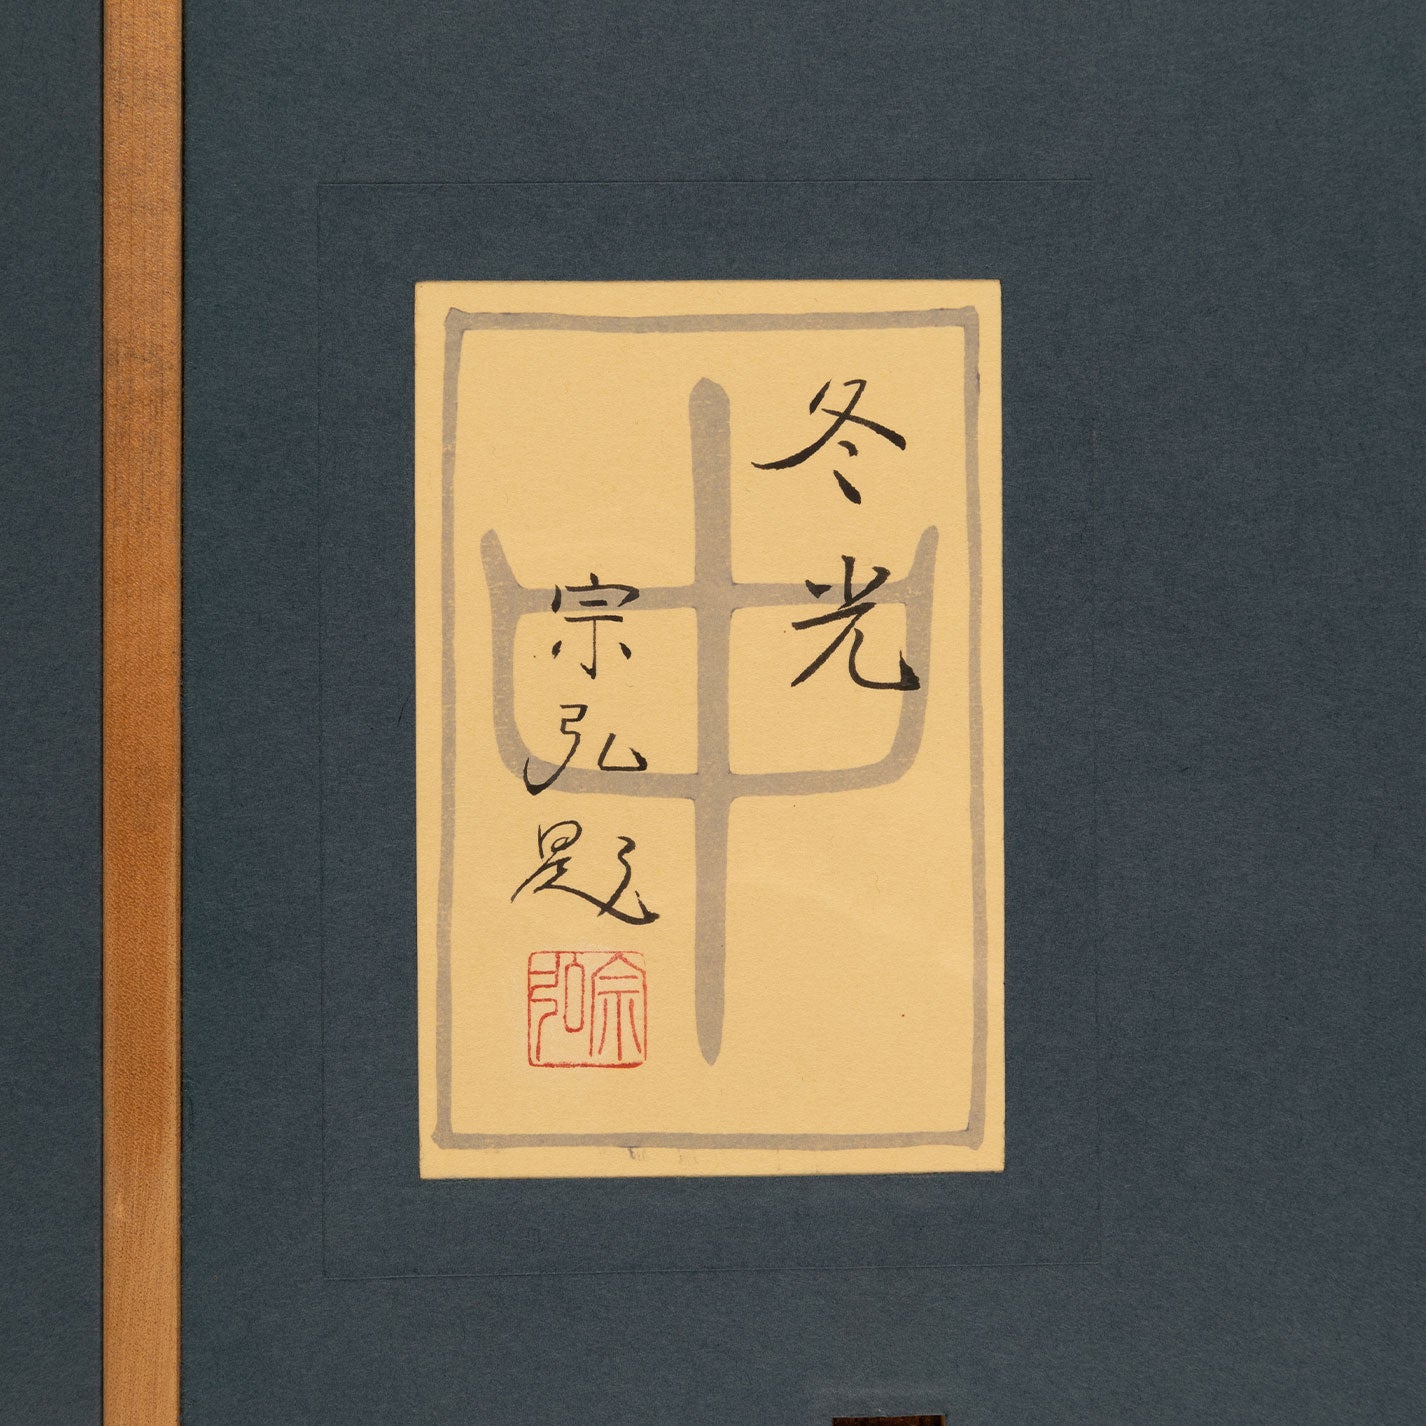 冬光
宗弘題
宗弘